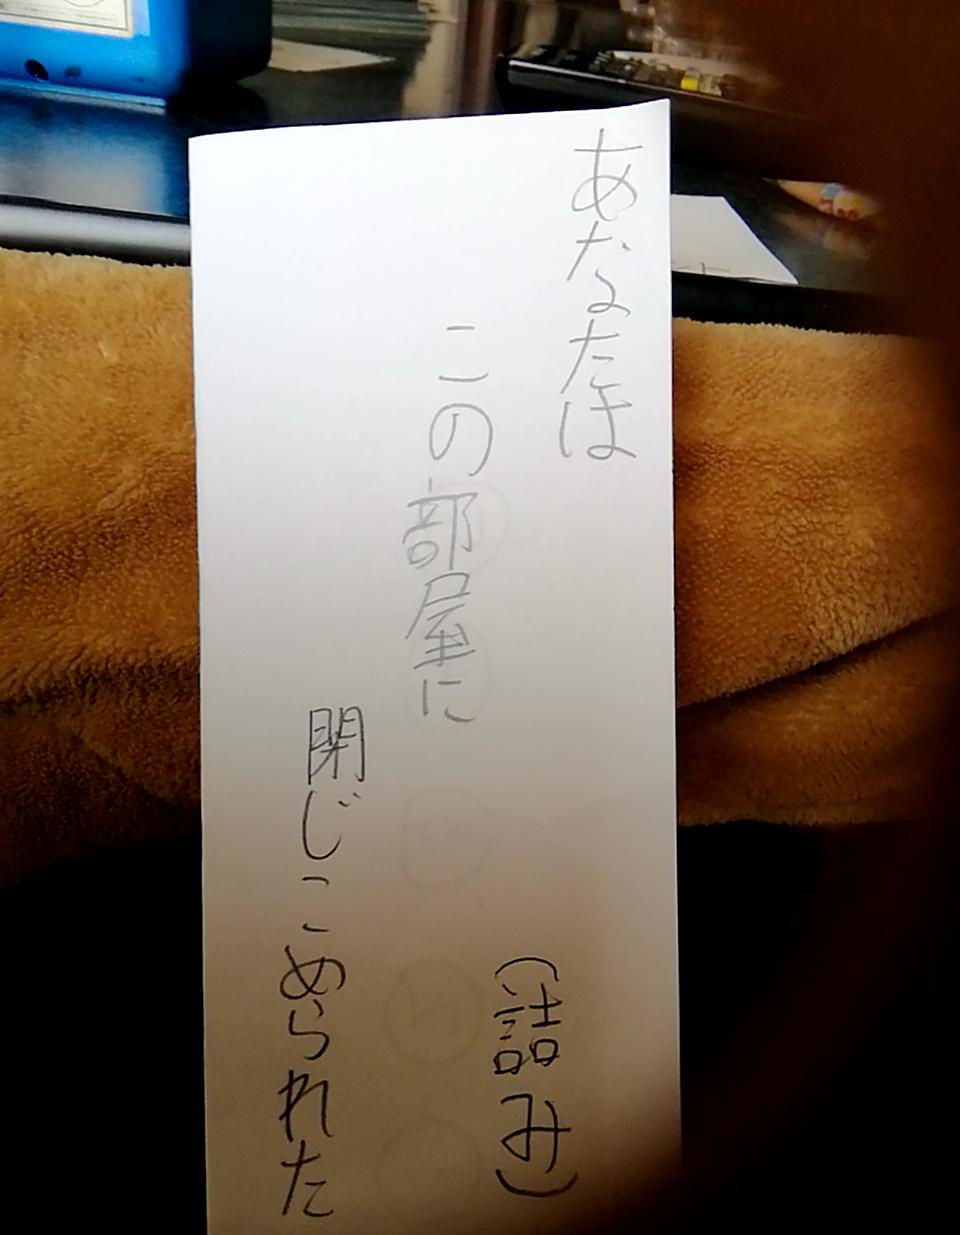 あなたは
この部屋に
閉じこめられた
(詰み)